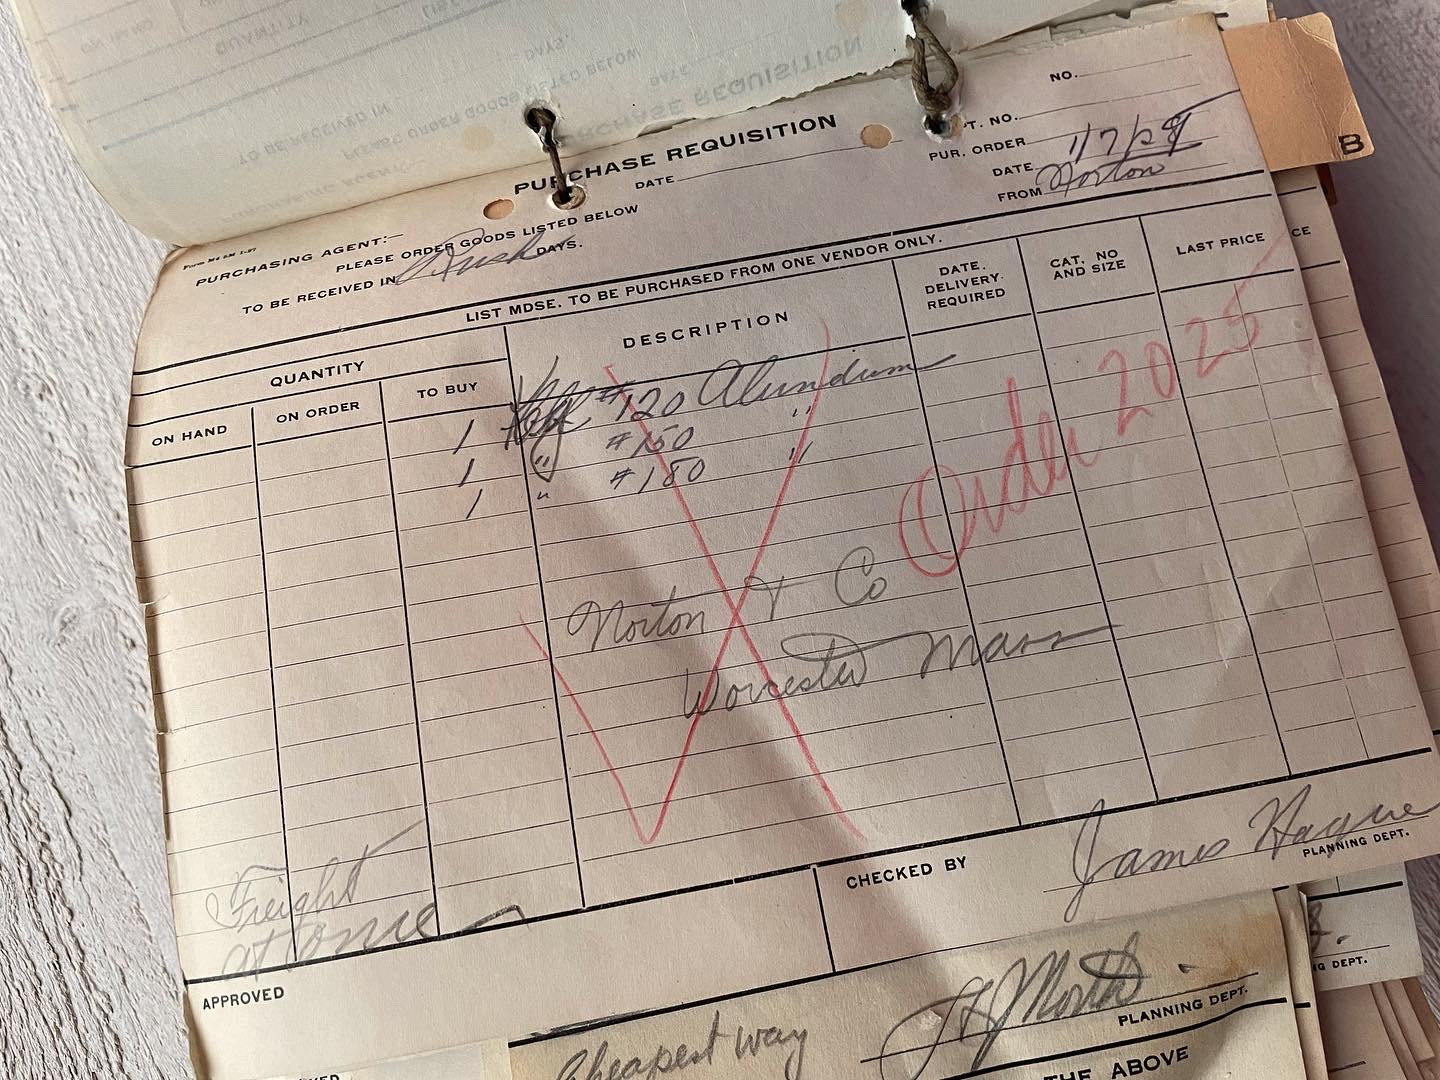 PURCHASE REQUISITION
NO.
PT. NO.
PUR. ORDER
DATE
DATE 1/7/29
FROM Norton
B
Form M4 5M 1-27
PURCHASING AGENT:—
PLEASE ORDER GOODS LISTED BELOW
TO BE RECEIVED IN Rush DAYS.
LIST MDSE. TO BE PURCHASED FROM ONE VENDOR ONLY.
QUANTITY
DESCRIPTION
DATE. DELIVERY REQUIRED
CAT. NO AND SIZE
LAST PRICE
CE
ON HAND
ON ORDER
TO BUY
1 Keg #120 Alundum
1 " #150 "
1 " #180 "
Order 2025
Norton & Co
Worcester Mass
Freight
at once
CHECKED BY
James Hague
PLANNING DEPT.
APPROVED
NG DEPT.
Cheapest way
PLANNING DEPT.
THE ABOVE